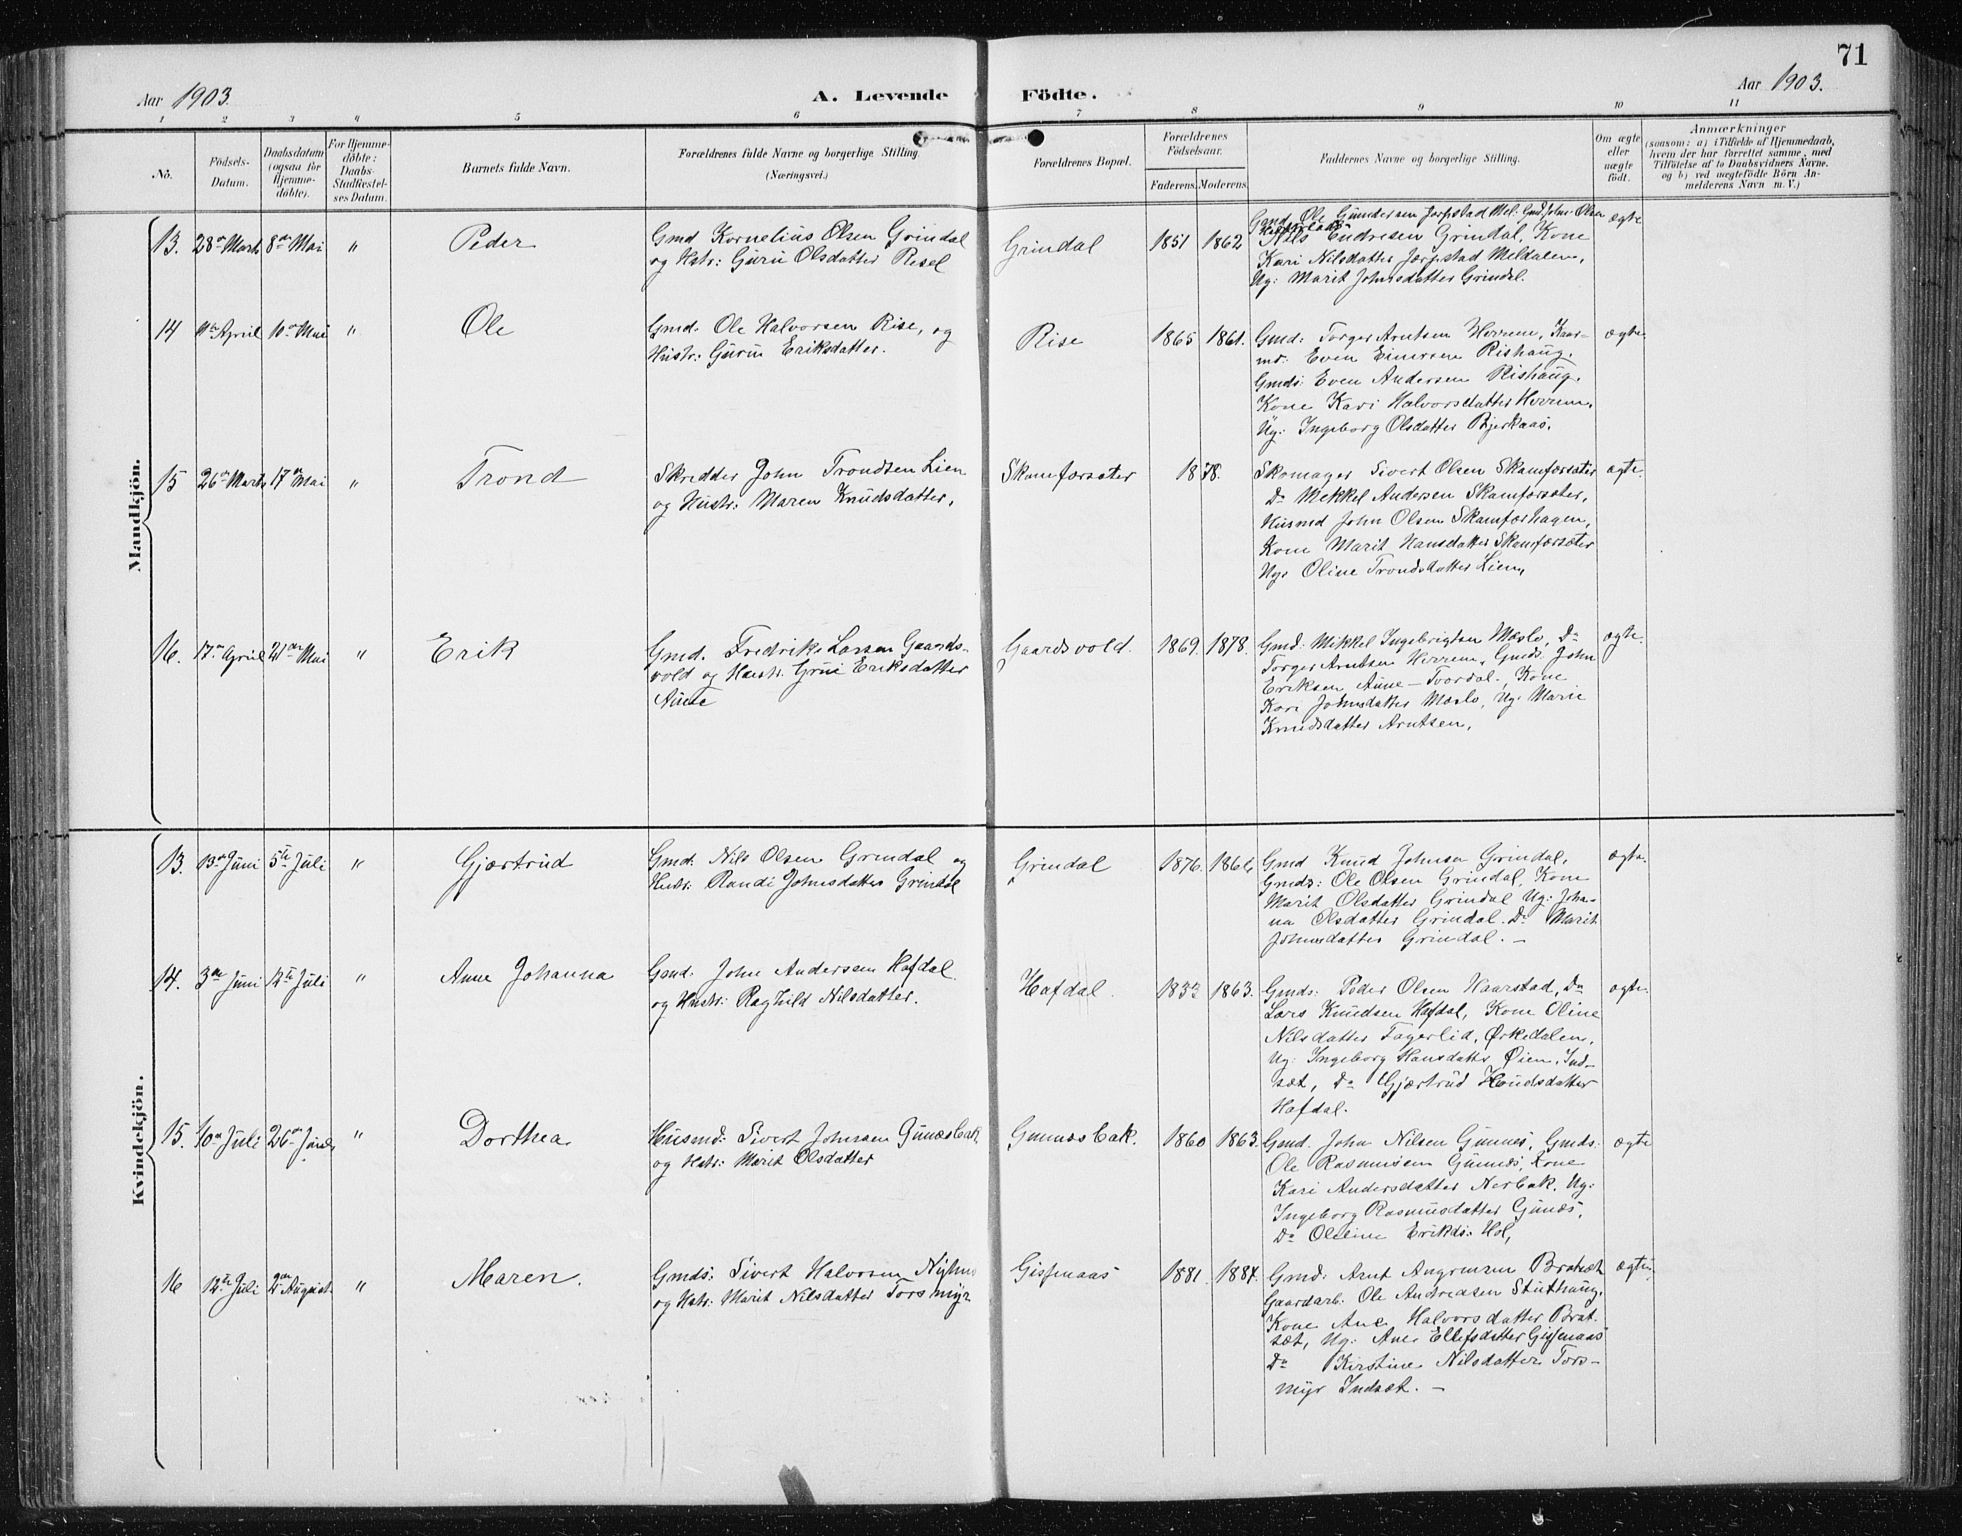 71
Aar 1903.
A. Levende Födte.
Aar 1903.
1 2 3 4 5 6 7 8 9 10 11
No.
Födsels-
Datum.
Daabsdatum
(ogsaa for
Hjemme-
döbte).
For Hjemme-
döbte:
Daabs-
Stadfæstel-
ses Datum.
Barnets fulde Navn.
Forældrenes fulde Navne og borgerlige Stilling
(Næringsvei.)
Forældrenes Bopæl.
Forældrenes
Födselsaar.
Faderens. Moderens.
Faddernes Navne og borgerlige Stilling.
Om ægte
eller
uægte
födt.
Anmærkninger
(saasom: a) i Tilfælde af Hjemmedaab,
hvem der har forrettet samme, med
Tilföielse af to Daabsvidners Navne.
og b) ved uægtefödte Börn An-
melderens Navn m. V.)
Mandkjön.
13. 28de Marts 8de Mai " Peder
Gmd Kornelius Olsen Grindal
og Hstr: Guru Olsdatter Resel
Grindal 1851 1862
Gmd. Ole Gundersen Jerpstad Mel. Gmd John Olsen
Nils Endresen Grindal, Kone
Kari Nilsdatter Jerpstad Meldalen,
Ug: Marit Johnsdatter Grindal.
ægte
14 April 10de Mai " Ole
Gmd: Ole Halvorsen Rise, og
Hustr: Guru Eriksdatter.
Rise 1865 1861.
Gmd: Torger Arntsen Herrem, Kaar-
md: Even Einersen Rishaug,
Gmds: Even Andersen Rishaug,
Kone Kari Halvorsdatter Herrem,
Ug: Ingeborg Olsdatter Bjerkaas.
ægte
15 26de Marts 17de Mai " Trond
Skredder John Trondsen Lien
og Hustr: Maren Knudsdatter,
Skamfersæter 1878.
Skomager Sivert Olsen Skamfersæter
Do Mekkel Andersen Skamfersæter,
Husmd John Olsen Skamferhagen,
Kone Marit Hansdatter Skamfersæter
Ug: Oline Trondsdatter Lien,
ægte.
16. 17de April 21de Mai " Erik
Gmd. Fredrik Larsen Gaards-
vold og Hustr. Gru Eriksdatter
Aune
Gaardsvold. 1869. 1878.
Gmd: Mikkel Ingebrigtsen Mæslo, Do
Torger Arntsen Herrem, Gmds: John
Eriksen Aune - Tvordal, Kone
Kari Johnsdatter Mæslo, Ug: Marie
Knudsdatter Arntsen,
ægte.
Kvindekjön.
13. 13de Juni 5te Juli " Gjærtrud
Gmd. Nils Olsen Grindal og
Hustr: Randi Johnsdatter Grindal
Grindal 1876.
Gmd Knud Johnsen Grindal,
Gmds: Ole Olsen Grindal, Kone
Marit Olsdatter Grindal Ug: Joha-
na Olsdatter Grindal. Do Marit
Johnsdatter Grindal. -
ægte.
14. 3de Juni 12te Juli " Anne Johanna
Gmd. John Andersen Hafdal
og Hustr: Raghild Nilsdatter.
Hafdal. 1863.
Gmds: Peder Olsen Haarstad, Do
Lars Knudsen Hafdal, Kone Oline
Nilsdatter Fagerlid, Ørkedalen,
Ug: Ingeborg Hansdatter Øien, Ind-
sæt, Do Gjærtrud
Hafdal.
ægte.
15. 10de Juli 26de " Dorthea
Husmd: Sivert Johnsen Gunæsbak
og Hstr: Marit Olsdatter
Gunnæsbak. 1860 1863.
Gmd. John Nilsen Gunnæs, Gmds:
Ole Rasmusen Gunnæs, Kone
Kari Andersdatter Nerbak, Ug:
Ingeborg Rasmusdatter Gunæs,
Do Oleline Eriksds: Hol,
ægte
16 12te Juli 2den August. " Maren.
Gmds: Sivert Halvorsen
og Hstr: Marit Nilsdatter Torsmyr
Gisnaas 1881. 1884.
Gmd: Arnt Bratset
Gaardarb: Ole Andreasen Stuthaug,
Kone Ane Halvorsdatter Brat-
sæt, Ug: Ane Ellefsdatter Gisnaas
Do Kirstine Nilsdatter Tors-
myr Indsæt. -
ægte